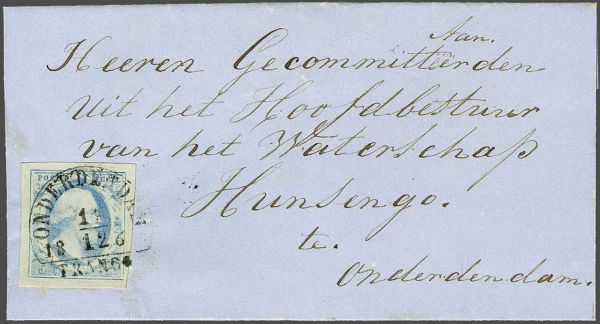 Aan.
Heeren Gecommitteerden
uit het Hoofdbestuur
van het Waterschap
Hunsengo.
te.
Onderdendam.
ONDERDENDAM
18
12
FRANCO